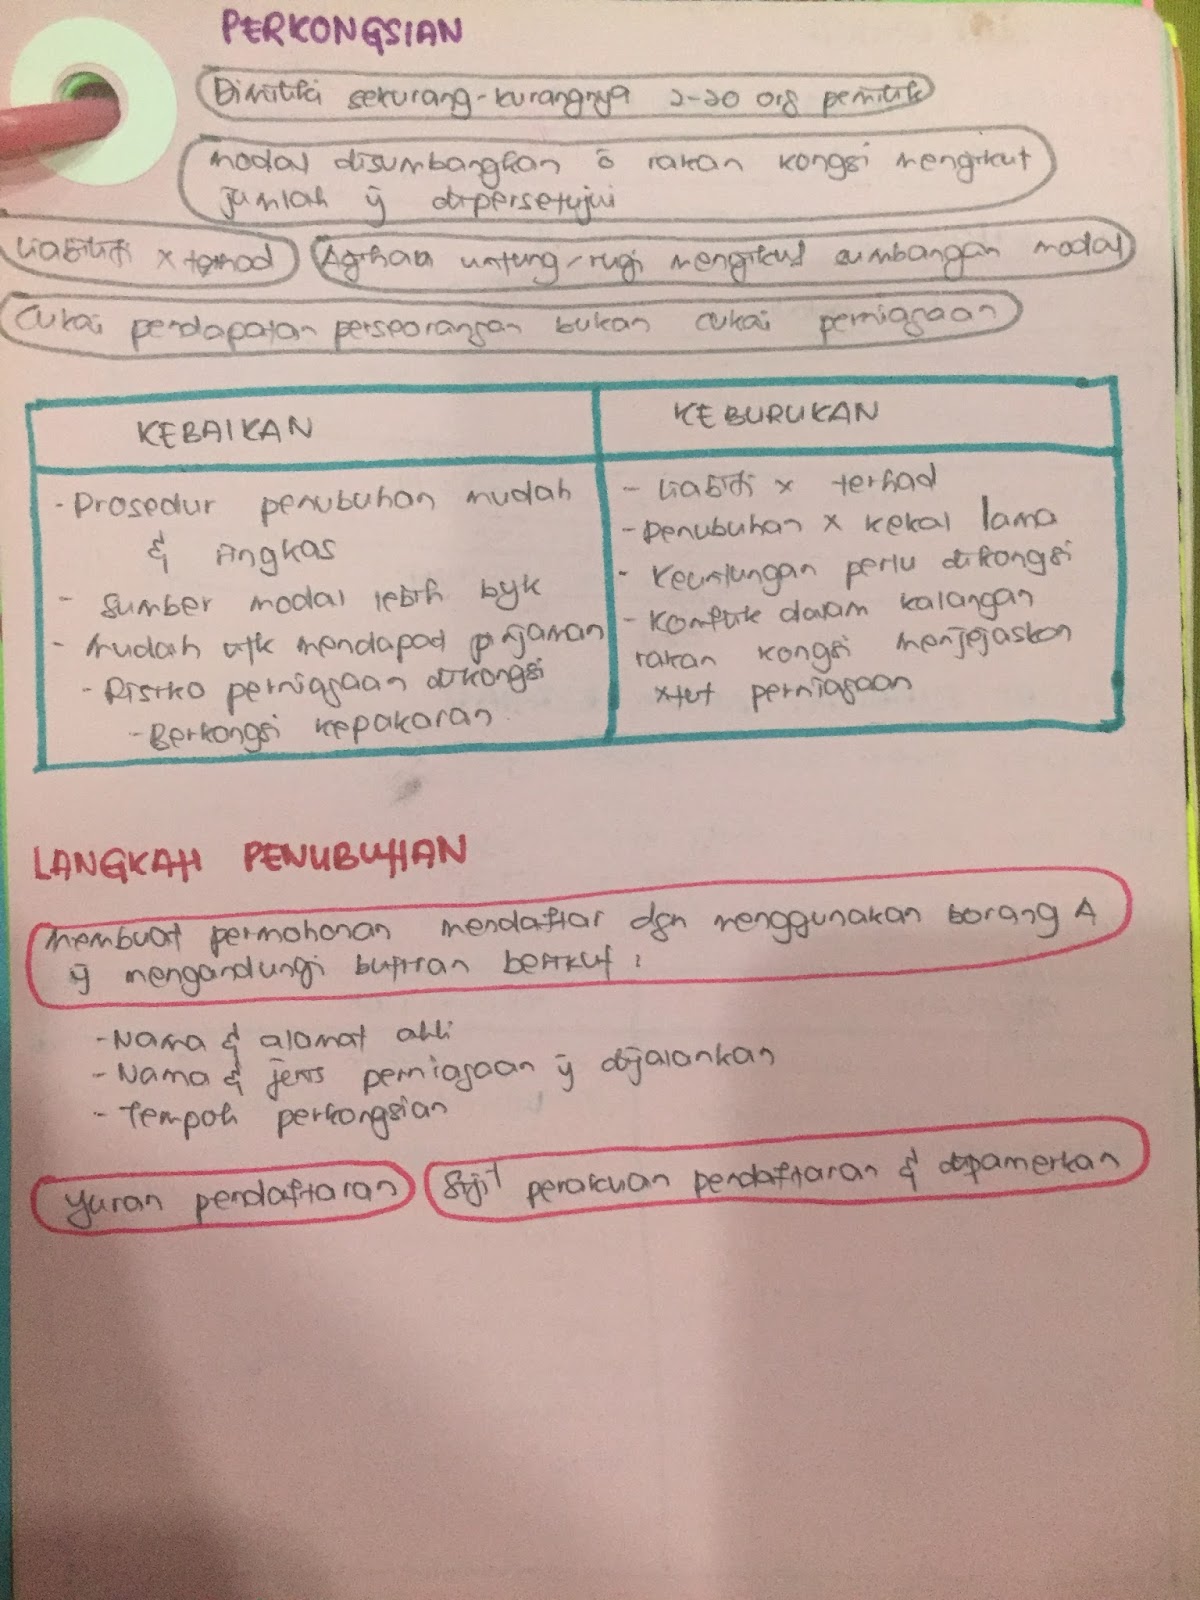 PERKONGSIAN
Dimiliki sekurang-kurangnya 2-20 org pemilik
Modal disumbangkan ō rakan kongsi mengikut
jumlah ÿ dipersetujui
Liabiliti x terhad
Agihan untung/rugi mengikut sumbangan modal
Cukai pendapatan perseorangan bukan cukai perniagaan
KEBAIKAN
- Prosedur penubuhan mudah
& ringkas
- Sumber modal lebih byk
- Mudah utk mendapad pinjaman
- Risiko perniagaan dikongsi
- Berkongsi kepakaran
KEBURUKAN
- Liabiliti x terhad
- Penubuhan x kekal lama
- Keuntungan perlu dikongsi
- Konflik dalam kalangan
rakan kongsi menjejaskan
perniagaan
LANGKAH PENUBUHAN
Membuat permohonan mendaftar dgn menggunakan borang A
ÿ mengandungi butiran berikut :
- Nama & alamat ahli
- Nama & jenis perniagaan ÿ dijalankan
- Tempoh perkongsian
Yuran pendaftaran
Sijil perakuan pendaftaran & dipamerkan